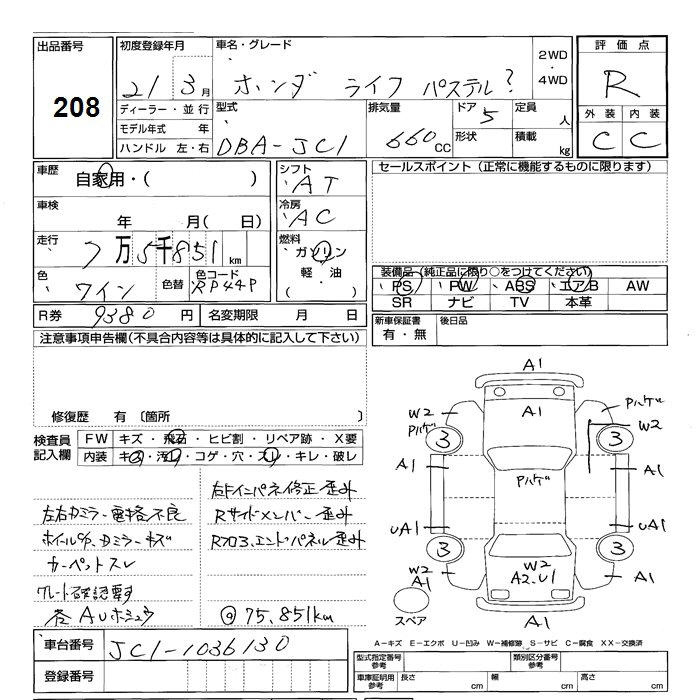 出品番号
208
初度登録年月
21 3月
車名・グレード
ホンダ ライフ パステル?
2WD
・
4WD
評価点
R
外装 内装
C C
ディーラー・並行
モデル年式 年
ハンドル 左・右
型式
DBA-JC1
排気量
660 CC
ドア 5
形状
定員 人
積載 kg
車歴
自家用・( )
車検
年 月( 日)
走行
7万5千851 km
色
ワイン
色替
色コード
RP44P
シフト
AT
冷房
AC
燃料
ガソリン
軽・油
( )
セールスポイント(正常に機能するものに限ります)
装備品(純正品に限り○をつけてください)
PS PW ABS エアB AW
SR ナビ TV 本革
R券 9380 円 名変期限 月 日
新車保証書
有・無
後日品
注意事項申告欄(不具合内容等は具体的に記入して下さい)
修復歴 有 〔箇所
検査員
記入欄
FW キズ・飛石・ヒビ割・リペア跡・X要
内装 キズ・汚レ・コゲ・穴・スレ・キレ・破レ
左右カミラー電格不良
ホイルC/P、カミラーキズ
カーペットスレ
グレード確認要す
各AUホシュウ
右ドインパネ修正歪み
Rサイドメンバー歪み
Rフロ3、エンドパネル歪み
@75,851km
A1
A1
W2
Pハゲ
3
A1
UA1
3
W2
A1
スペア
Pハゲ
W2
A2.U1
A1
Pハゲ
W2
3
A1
UA1
3
A1
A-キズ E-エクボ U-凹み W-補修跡 S-サビ C-腐食 XX-交換済
車台番号 JC1-1036130
登録番号
型式指定番号
参考
類別区分番号
参考
車庫証明用
参考
長さ cm 幅 cm 高さ cm